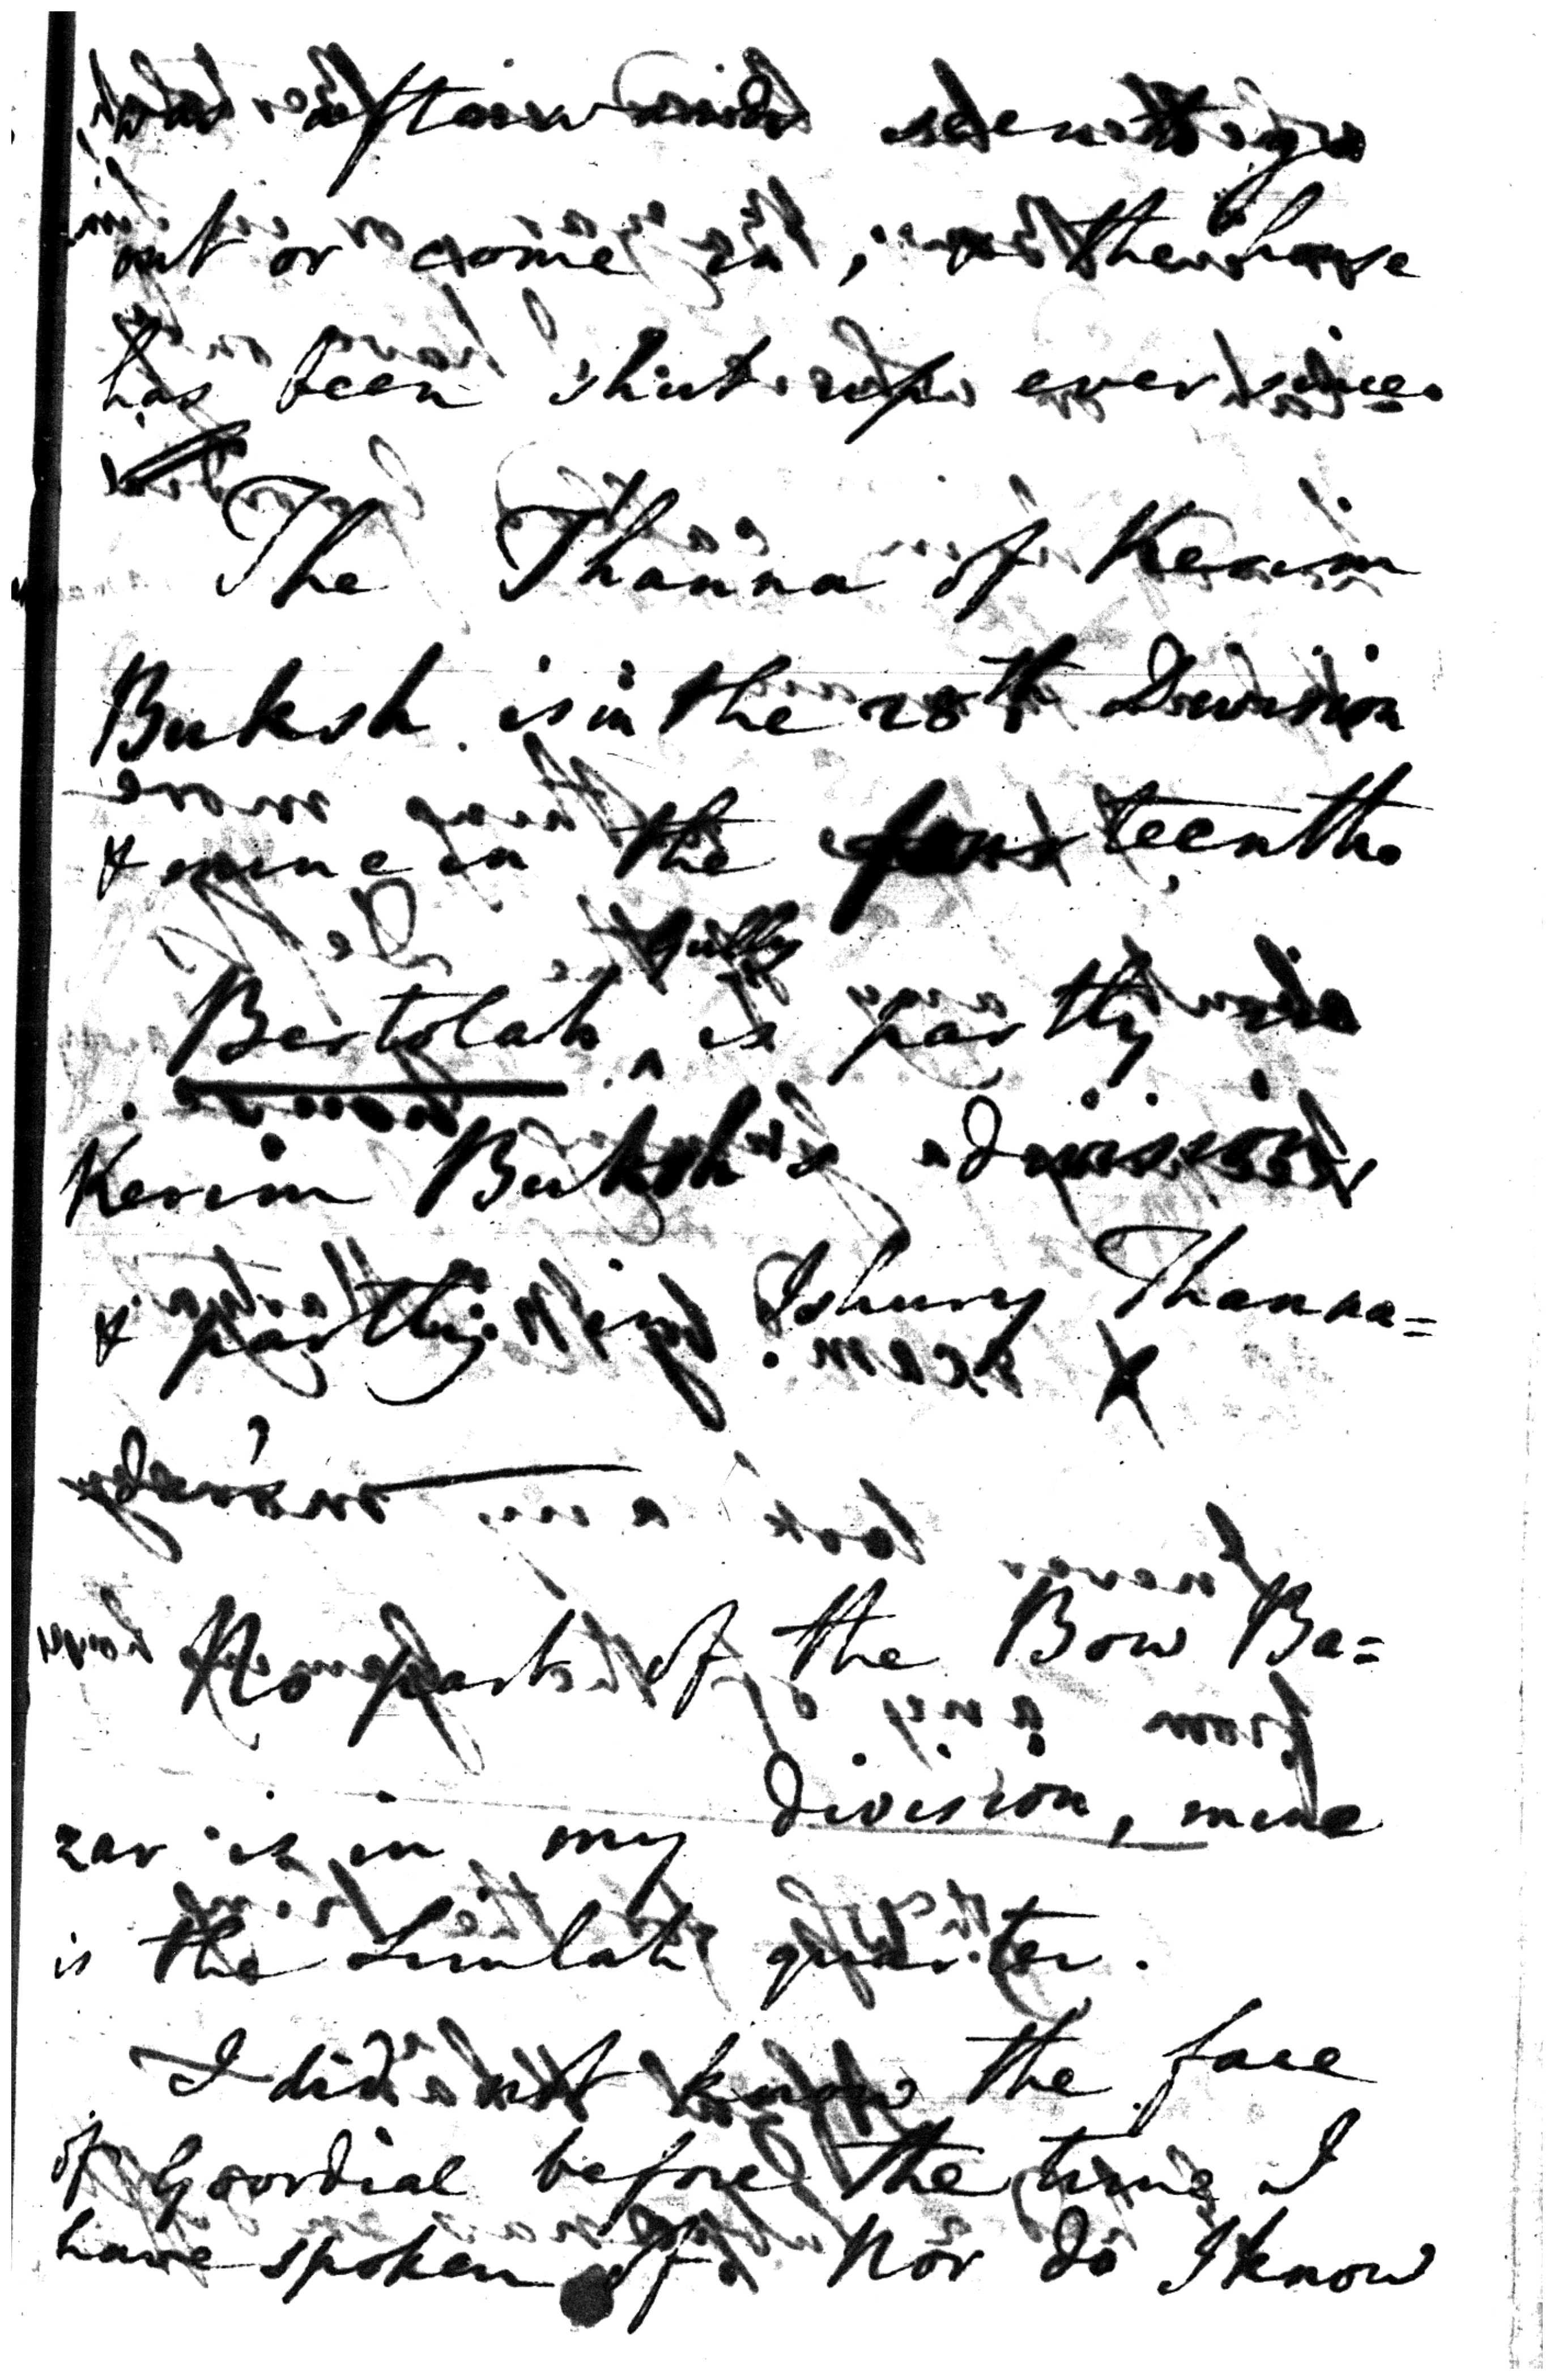 was afterwards seen to go
out or come in, the house
has been shut up ever since.
The Thanna of Kerim
Buksh is in the 28th Division
& mine in the fourteenth.
Bertolah ^ Gully is partly in
Kerim Buksh's division
& partly in Ishury Thanna=
dar's
No part of the Bow Ba=
zar is in my division, mine
is the Simlah quarter.
I did not know the face
of Goordial before the time I
have spoken of. Nor do I know